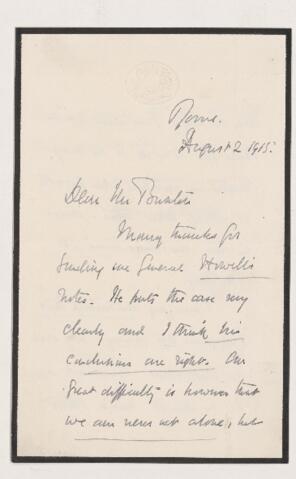 Rome.
August 2 1915.
Dear Mr
Many thanks for
sending me General Howell's
notes. He puts the case very
clearly and I think his
conclusions are right. Our
great difficulty is however that
we are not alone, but